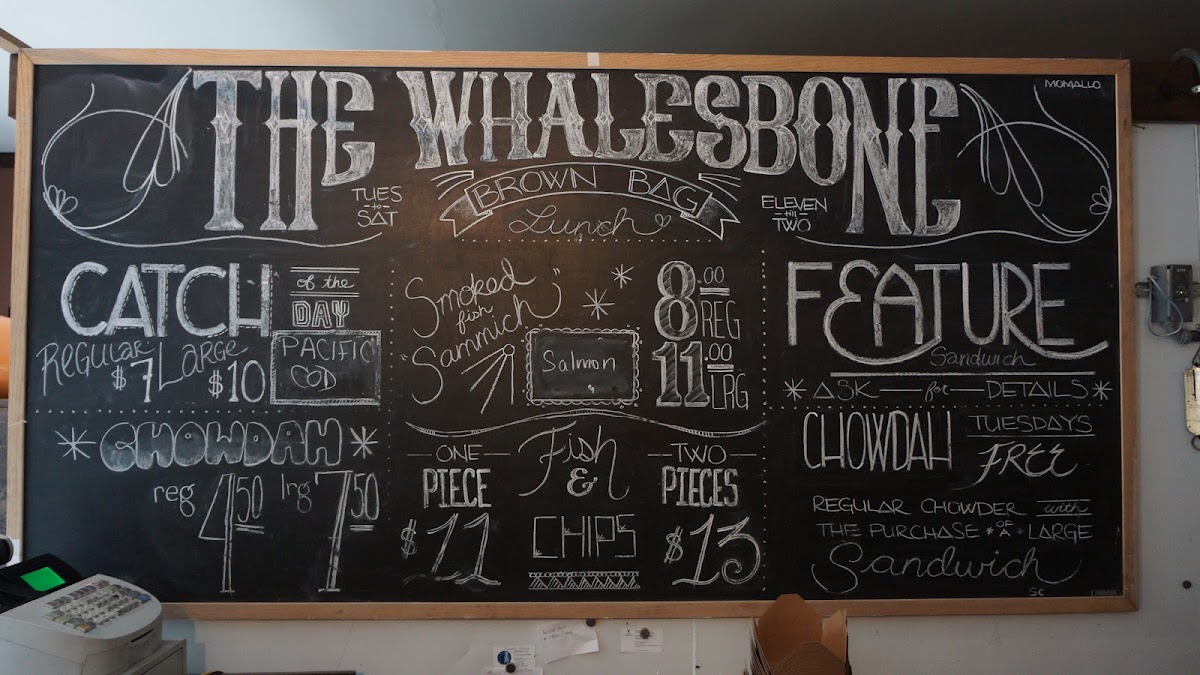 MOMALLO
THE WHALESBONE
TUES
to
SAT
BROWN BAG
Lunch
ELEVEN
till
TWO
CATCH
of the
DAY
REGULAR
$7
LARGE
$10
PACIFIC
COD
"Smoked
fish
Sammich"
Salmon
8.00
REG
11.00
LRG
FEATURE
Sandwich
* ASK for DETAILS *
* CHOWDAH *
reg 4.50
lrg 7.50
Fish
&
CHIPS
ONE
PIECE
$11
TWO
PIECES
$13
CHOWDAH
TUESDAYS
FREE
REGULAR CHOWDER with
THE PURCHASE * OF A * LARGE
Sandwich
SC